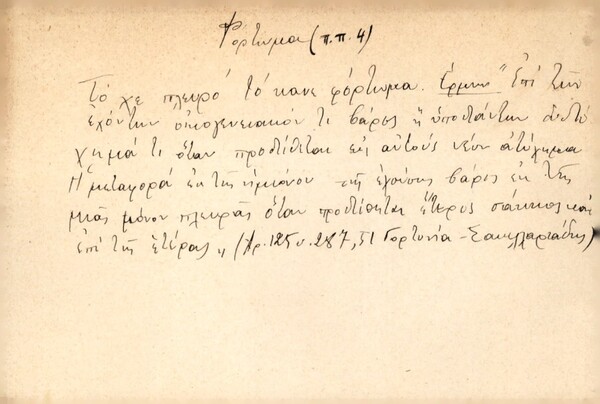 Φόρτωμα (π.π. 4)
Τό χε πλευρό τό κανε φόρτωμα. Ερμην "Επί τῶν
ἐχόντων οἰκογενειακόν τι βάρος ἤ ὑποστάντων δυστύ
χημά τι ὅταν προστίθεται εἰς αὐτούς νέον ἀτύχημα
Ἡ μεταφορά ἐκ τῆς ἡμιόνου τῆς ἐχούσης βάρος ἐκ τῆς
μιᾶς μόνον πλευρᾶς ὅταν προστίθεται ἕτερος σάκκος καί
ἐπί τῆς ἑτέρας" (Χρ. 125 ν. 287, 51 Γορτυνία - Σακελλαριάδης)